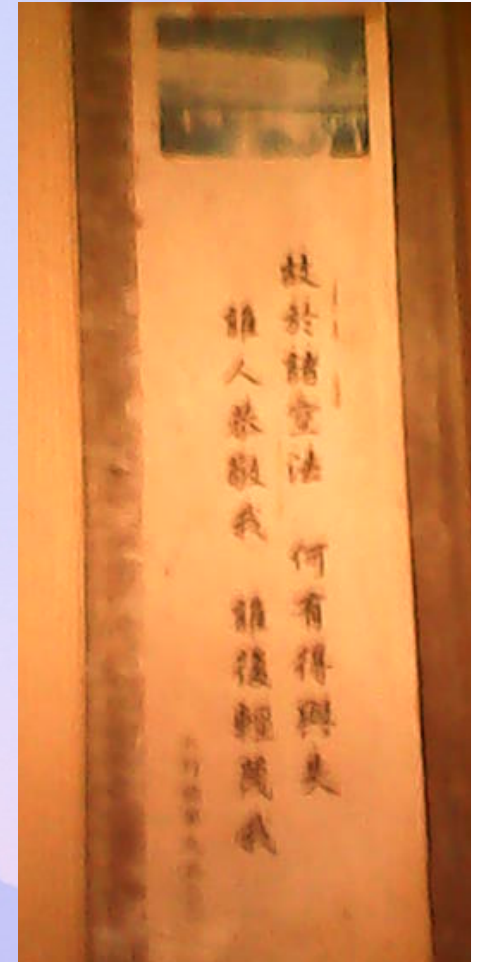 故於諸空法　何有得與失
誰人恭敬我　誰復輕蔑我